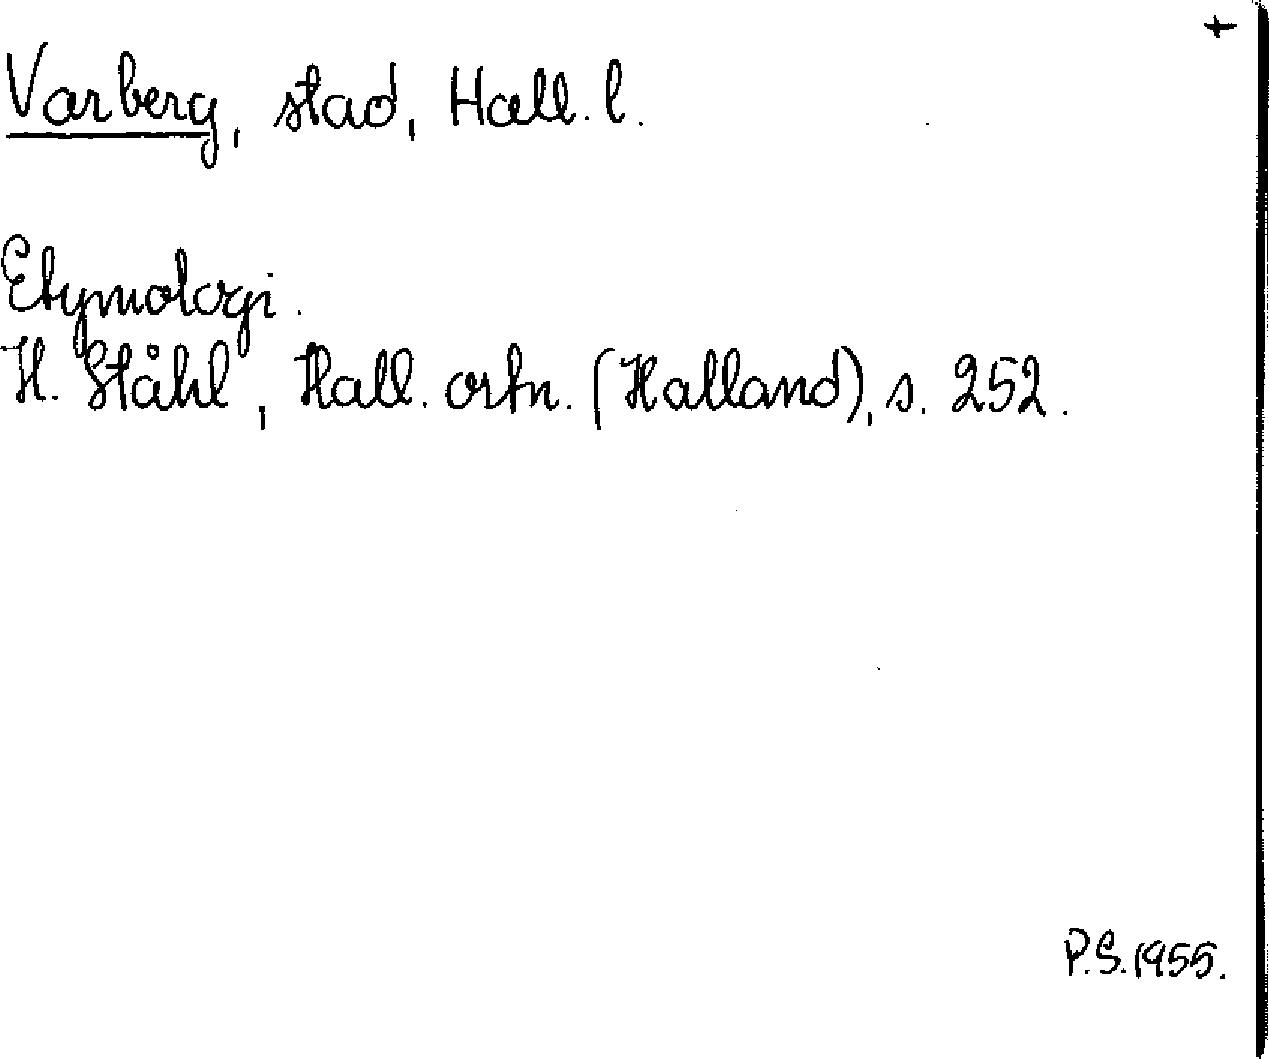 +
Varberg, stad, Hall. l.
Etymologi.
H. Ståhl, Hall. ortn. (Halland), s. 252.
P.S. 1955.